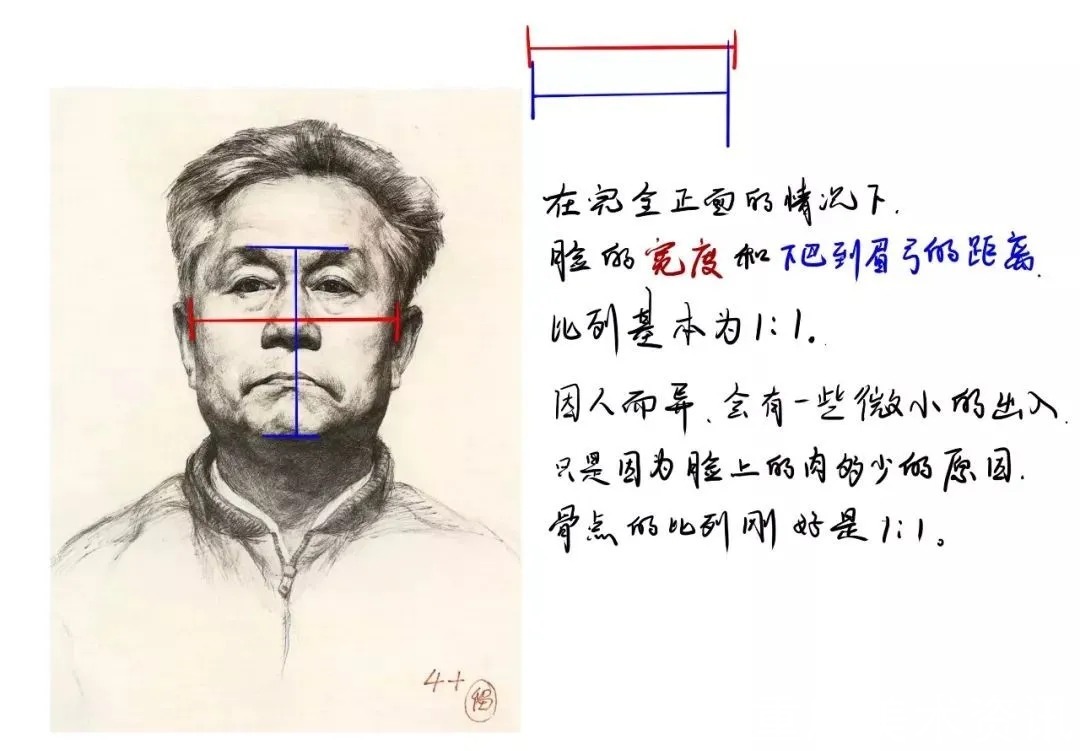 在完全正面的情况下.
脸的宽度和下巴到眉弓的距离.
比列基本为1:1。
因人而异、会有一些微小的出入.
只是因为脸上的肉多少的原因.
骨点的比列刚好是1:1。
4+
强